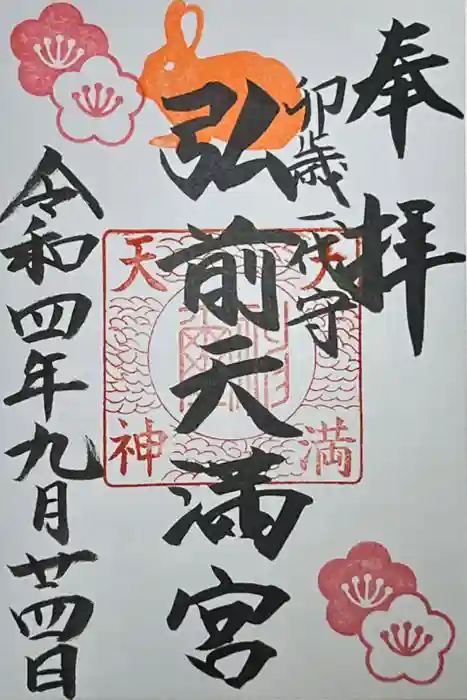 奉拝
卯歳一代守
弘前天満宮
令和四年九月廿四日
天満
天神